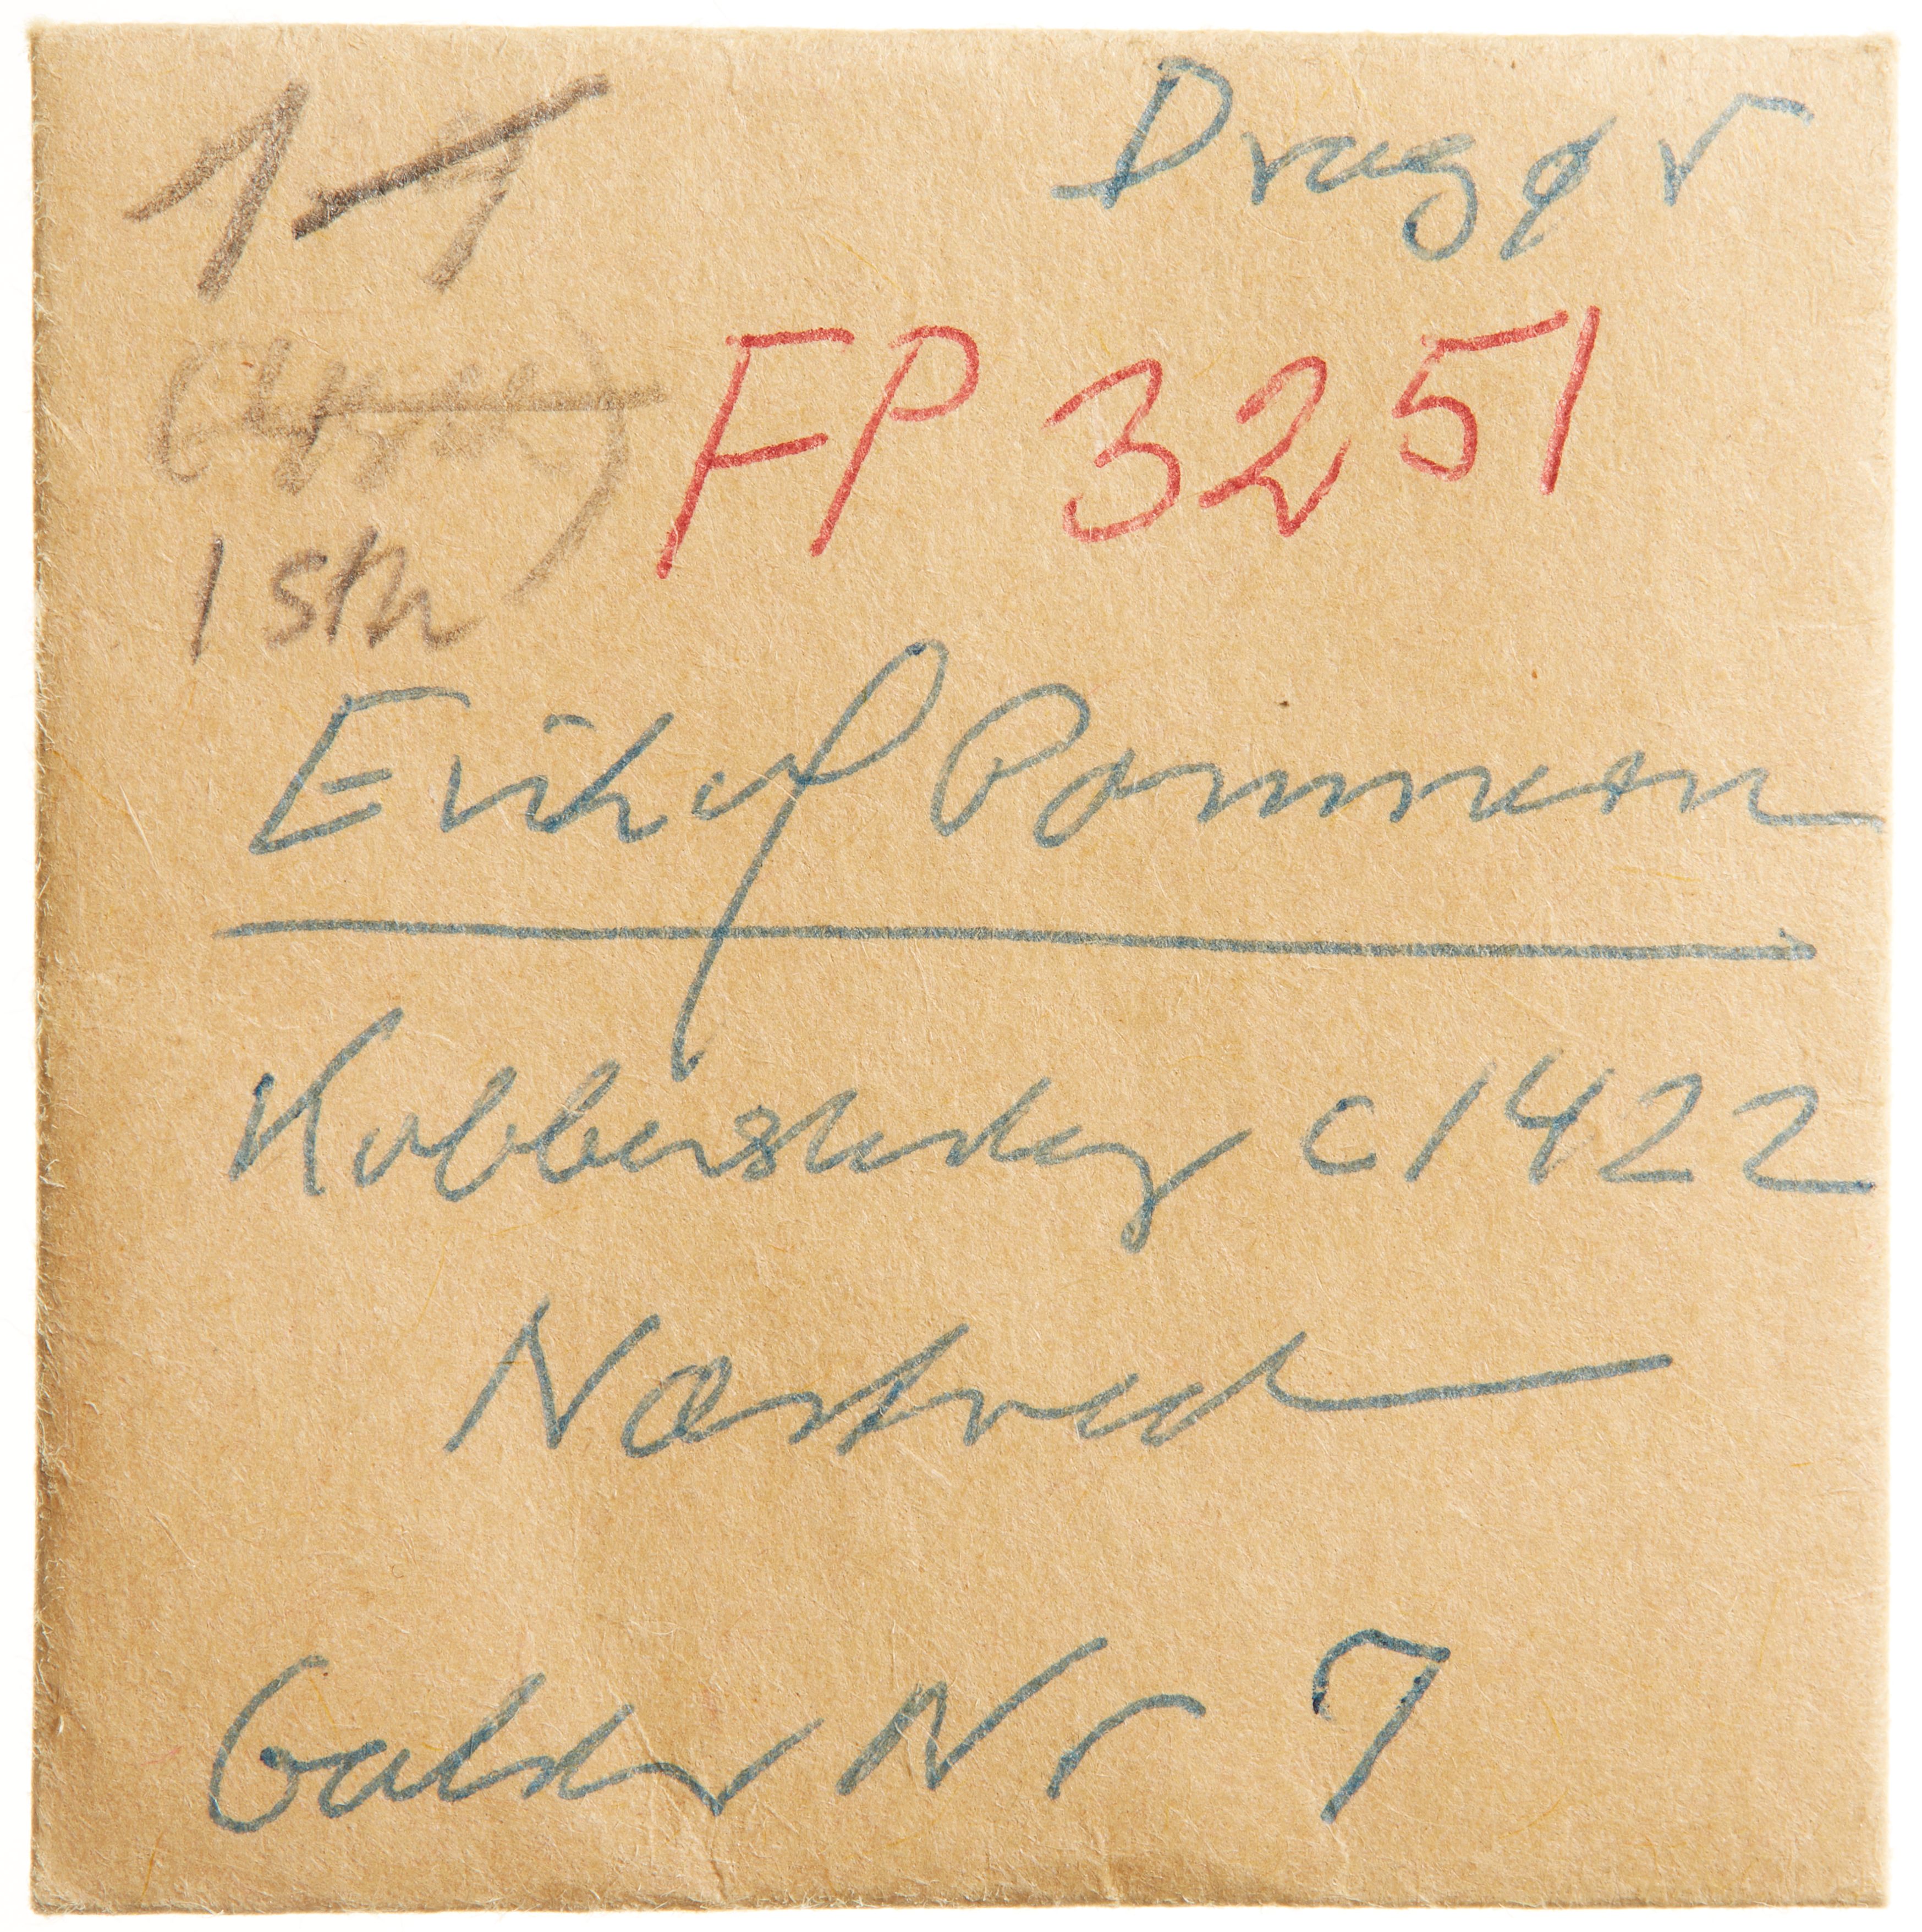 1-1 Dragør
FP 3251
1 stk
Erik af Pommern
Kobbersterling c 1422
Næstved
Galster Nr 7